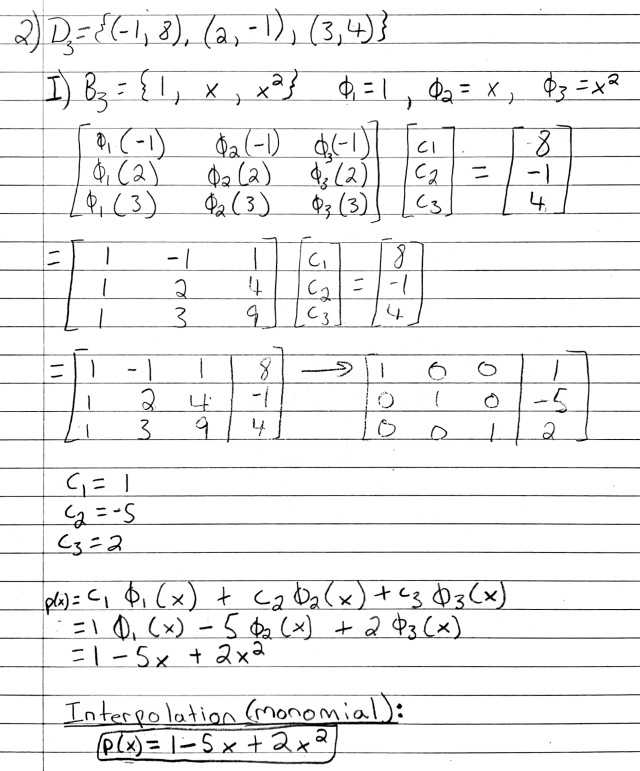 2) D₃ = {(-1, 8), (2, -1), (3, 4)}
I) B₃ = {1, x, x²} ϕ₁ = 1, ϕ₂ = x, ϕ₃ = x²
[ϕ₁(-1) ϕ₂(-1) ϕ₃(-1)] [c₁] [8]
[ϕ₁(2) ϕ₂(2) ϕ₃(2)] [c₂] = [-1]
[ϕ₁(3) ϕ₂(3) ϕ₃(3)] [c₃] [4]
= [1 -1 1] [c₁] [8]
[1 2 4] [c₂] = [-1]
[1 3 9] [c₃] [4]
= [1 -1 1 | 8] → [1 0 0 | 1]
[1 2 4 | -1] [0 1 0 | -5]
[1 3 9 | 4] [0 0 1 | 2]
c₁ = 1
c₂ = -5
c₃ = 2
p(x) = c₁ ϕ₁(x) + c₂ ϕ₂(x) + c₃ ϕ₃(x)
= 1 ϕ₁(x) - 5 ϕ₂(x) + 2 ϕ₃(x)
= 1 - 5x + 2x²
Interpolation (monomial):
p(x) = 1 - 5x + 2x²